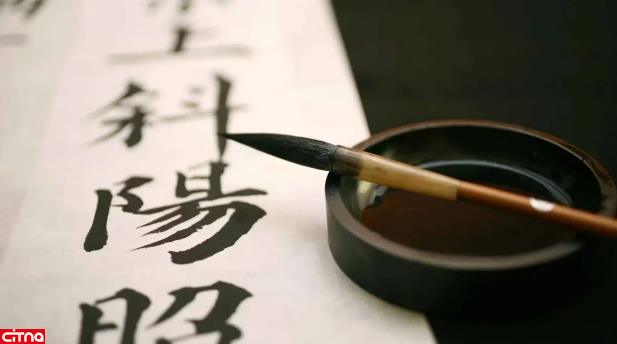 上斜陽照
CITNA